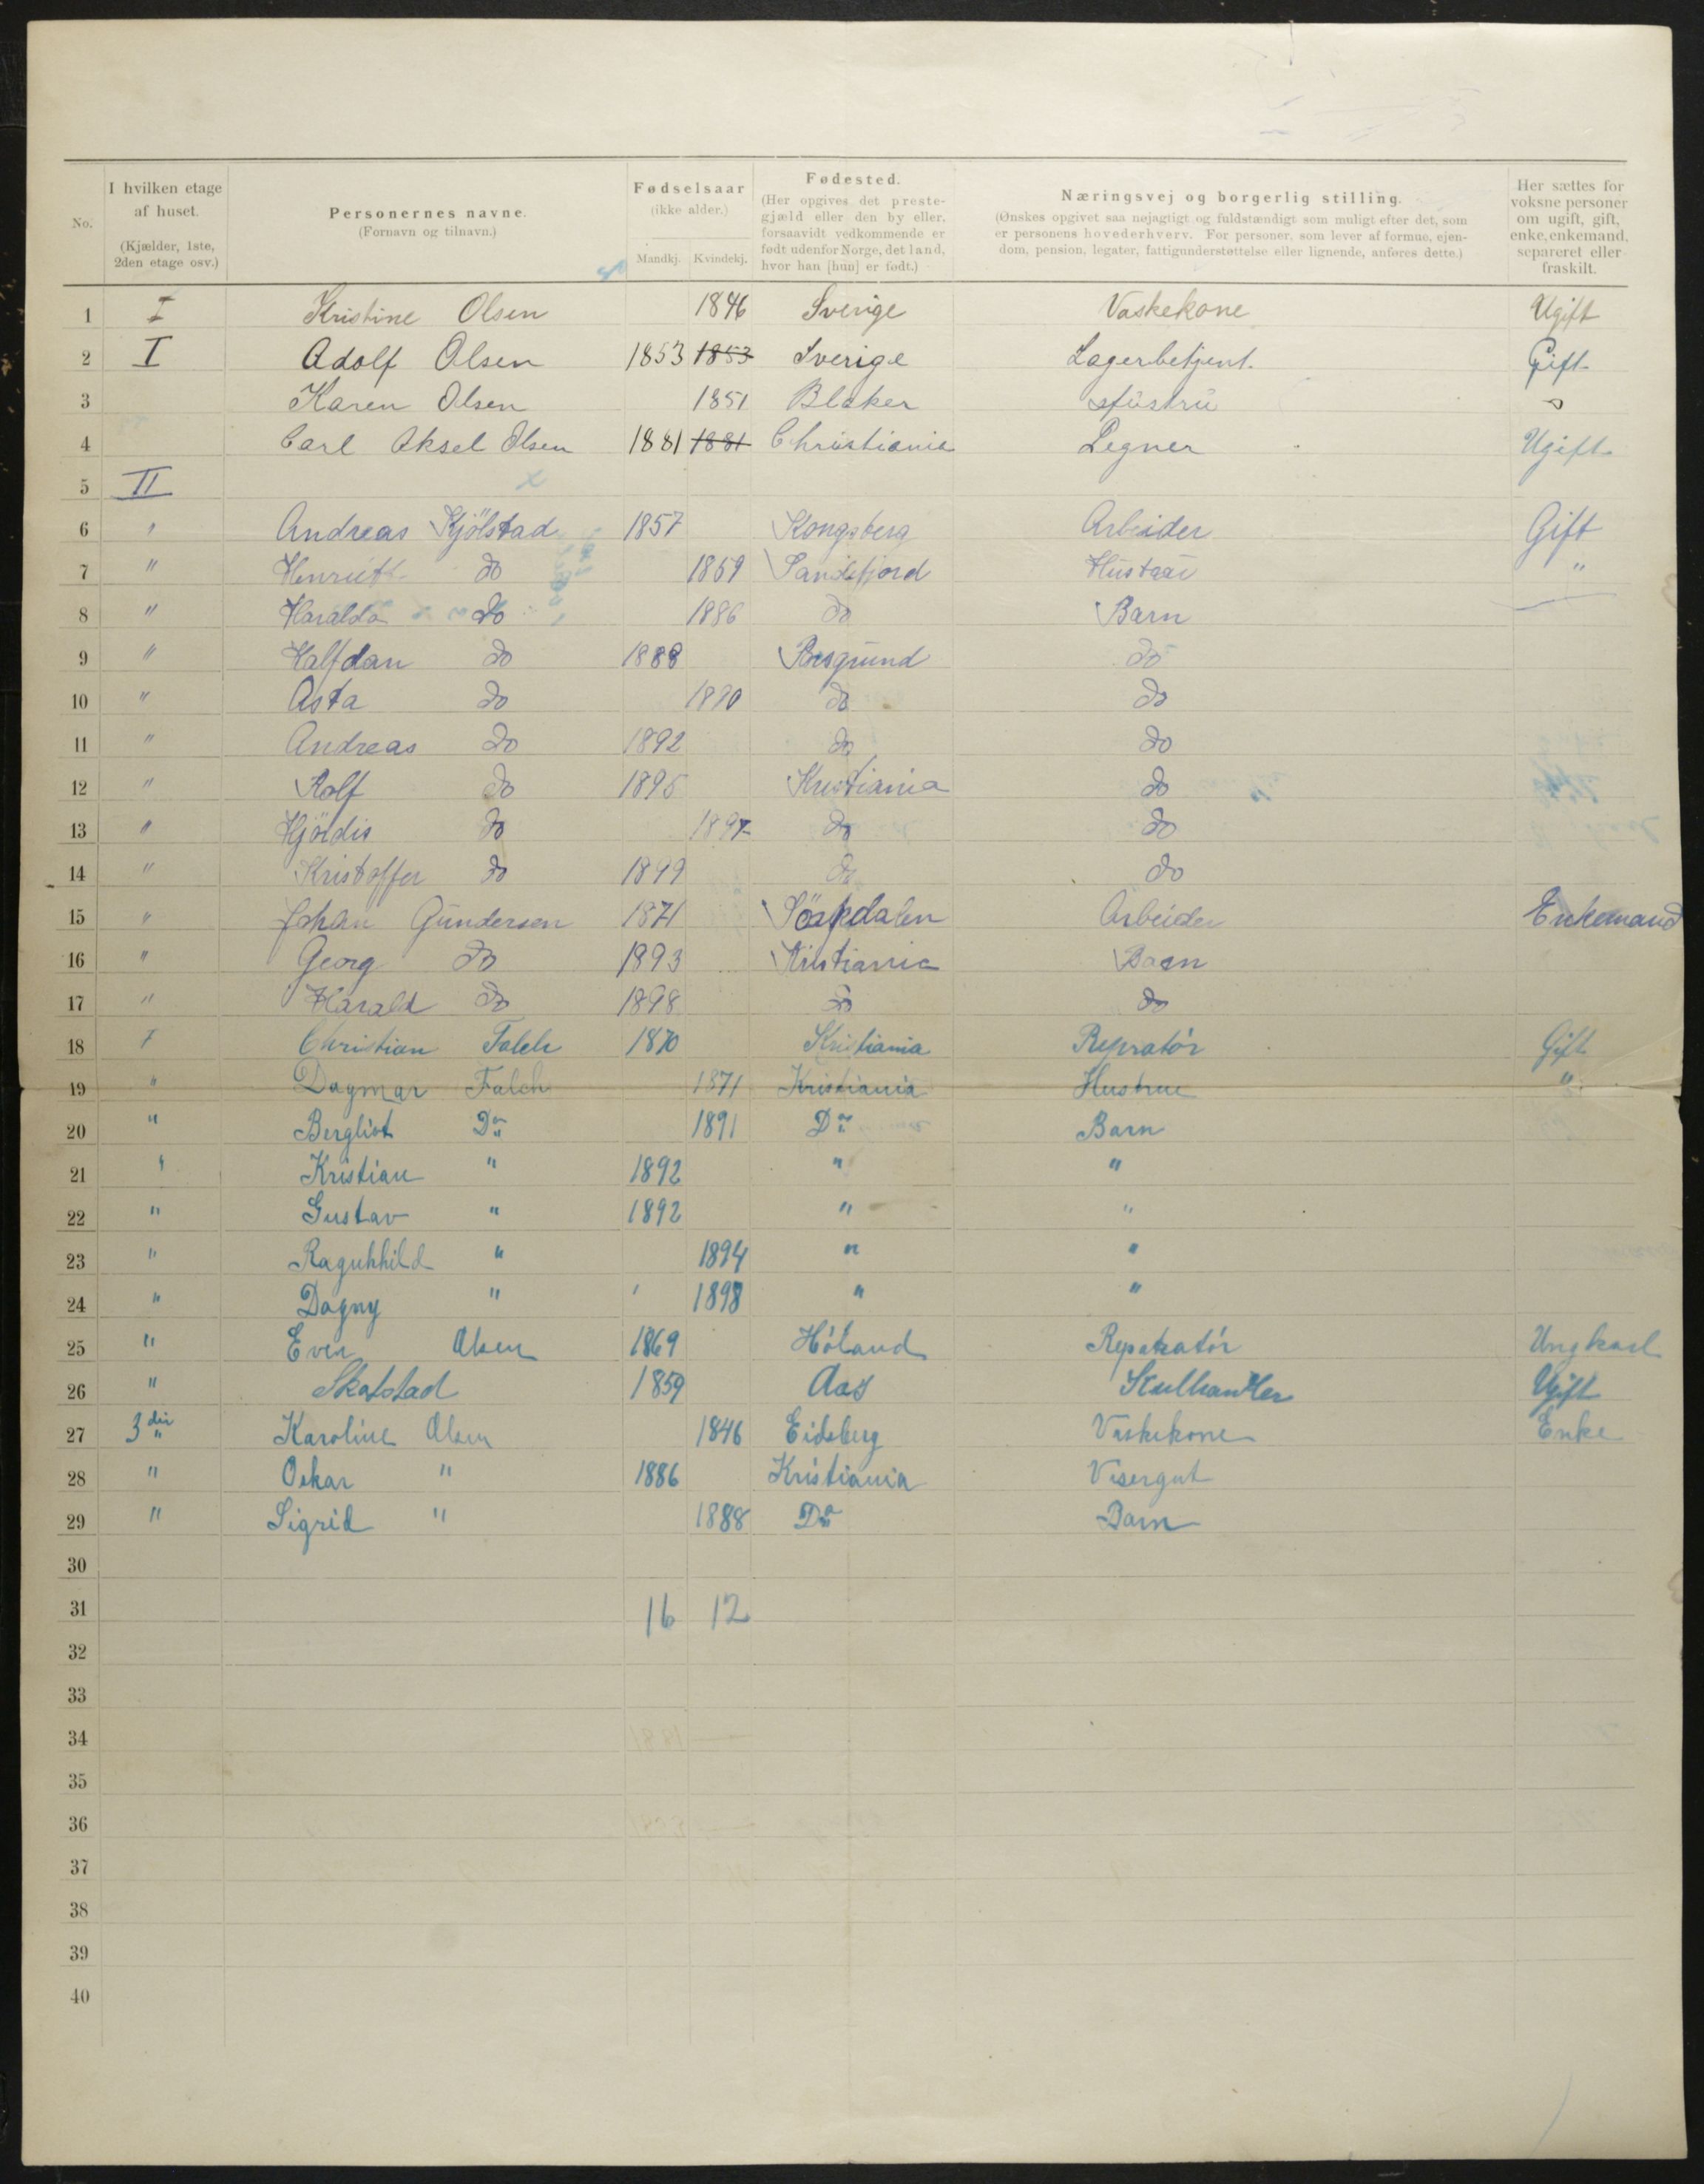 No.
I hvilken etage af huset. (Kjælder, 1ste, 2den etage osv.)
Personernes navne. (Fornavn og tilnavn.)
Fødselsaar (ikke alder.) Mandkj. Kvindekj.
Fødested. (Her opgives det prestegjæld eller den by eller, forsaavidt vedkommende er født udenfor Norge, det land, hvor han [hun] er født.)
Næringsvej og borgerlig stilling. (Ønskes opgivet saa nøjagtigt og fuldstændigt som muligt efter det, som er personens hovederhverv. For personer, som lever af formue, ejendom, pension, legater, fattigunderstøttelse eller lignende, anføres dette.)
Her sættes for voksne personer om ugift, gift, enke, enkemand, separeret eller fraskilt.
1 I Kristine Olsen 1846 Sverige Vaskekone Ugift
2 I Adolf Olsen 1853 1853 Sverige Lagerbetjent. Gift
3 Karen Olsen 1851 Blaker Hustru
4 Carl Aksel Olsen 1881 1881 Christiania Tegner Ugift
5 II
6 " Andreas Kjölstad 1857 Kongsberg Arbeider Gift
7 " do 1859 Sandefjord Hustru "
8 " Haralda do 1886 do Barn
9 " Halfdan do 1888 Porsgrund do
10 " Asta do 1890 do do
11 " Andreas do 1892 do do
12 " Rolf do 1895 Kristiania do
13 " Hjördis do 1897 do do
14 " Kristoffer do 1899 do do
15 " Johan Gundersen 1871 Sörkdalen Arbeider Enkemand
16 " Georg do 1893 Kristiania Barn
17 " Harald do 1898 do do
18 I Christian Falch 1870 Kristiania Repratör Gift
19 " Dagmar Falch 1871 Kristiania Hustrue "
20 " Bergliot Do 1891 Do Barn
21 " Kristian " 1892 " "
22 " Gustav " 1892 " "
23 " Ragnhhild " 1894 " "
24 " Dagny " 1898 " "
25 " Even Olsen 1869 Höland Reparatör Ungkarl
26 " Skatstad 1859 Aas Kulhandler Ugift
27 3die Karoline Olsen 1846 Eidsberg Vaskekone Enke
28 " Oskar " 1886 Kristiania Visergut
29 " Sigrid " 1888 Do Barn
30
31 16 12
32
33
34
35
36
37
38
39
40